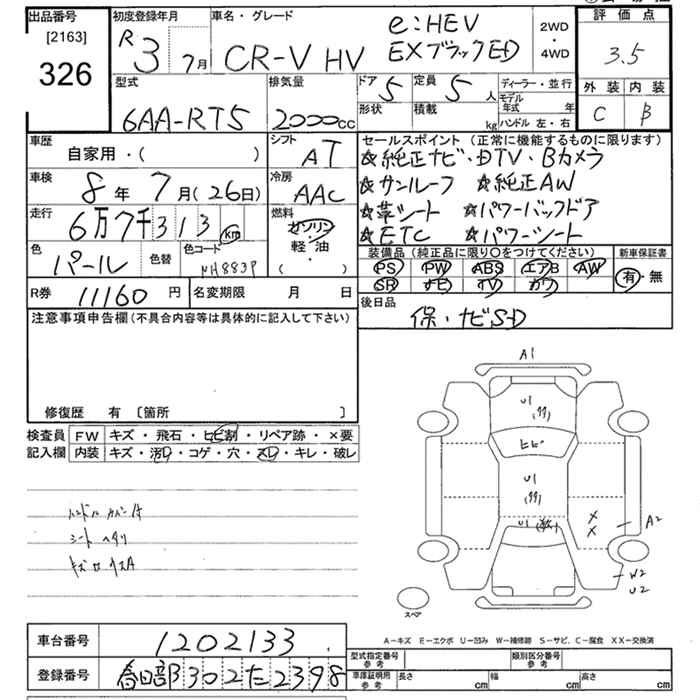 出品番号
[2163]
326
初度登録年月
R 3 7月
車名・グレード
CR-V HV
e:HEV
EXブラックED
2WD
・
4WD
評価点
3.5
外装 内装
C B
型式
6AA-RT5
排気量
2000cc
ドア 5
定員 5人
形状
積載 kg
ディーラー・並行
モデル年式 年
ハンドル 左・右
車歴
自家用・( )
シフト
AT
車検
8年 7月(26日)
冷房
AAC
走行
6万7千313km
燃料
ガソリン・
軽・油
( )
色
パール
色替
色コード
NH883P
セールスポイント (正常に機能するものに限ります)
☆純正ナビ・DTV・Bカメラ
☆サンルーフ ☆純正AW
☆革シート ☆パワーバックドア
☆ETC ☆パワーシート
装備品(純正品に限り○をつけてください)
PS PW ABS エアB AW
SR ナビ TV カワ
新車保証書
有・無
R券 11160円
名変期限 月 日
後日品
保・ナビSD
注意事項申告欄(不具合内容等は具体的に記入して下さい)
修復歴 有 〔箇所 〕
検査員記入欄
FW キズ・飛石・ヒビ割・リペア跡・×要
内装 キズ・汚レ・コゲ・穴・スレ・キレ・破レ
ハンドルカバー付
シート ヘタリ
A1
U1
ヒビ
U1
U1
X
X
A2
W2
U2
スペア
A-キズ E-エクボ U-凹み W-補修跡 S-サビ、C-腐食 XX-交換済
車台番号
1202133
登録番号
春日部302た2398
型式指定番号
参考
類別区分番号
参考
車庫証明用
参考
長さ cm
幅 cm
高さ cm